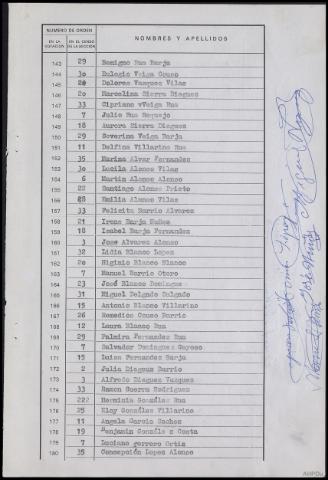 NUMERO DE ORDEN
EN LA VOTACION
EN EL CENSO DE LA SECCION
NOMBRES Y APELLIDOS
143 29 Benigno Rua Barja
144 30 Eulogio Veiga Couso
145 25 Dolores Vazquez Vila
146 20 Marcelina Sierra Dieguez
147 33 Cipriano vVeiga Rua
148 7 Julio Rua Requejo
149 18 Aurora Sierra Dieguez
150 29 Severina Veiga Barja
151 11 Delfina Villarino Rua
152 35 Marina Alvar Fernandez
153 30 Lucila Alonso Vilas
154 6 Martin Alonso Alonso
155 22 Santiago Alonso Prieto
156 28 Emilia Alonso Vilas
157 33 Felicita Barrio Alvarez
158 21 Irene Barja Nuñez
159 18 Isabel Barja Fernandez
160 3 Jose Alvarez Alonso
161 32 Lidia Blanco Lopez
162 20 Higinio Blanco Blanco
163 7 Manuel Barrio Otero
164 23 José Blanco Dominguez
165 31 Miguel Delgado Delgado
166 15 Antonio Blanco Villarino
167 26 Remedios Couso Barrio
168 12 Laura Blanco Rua
169 29 Palmira Fernandez Rua
170 7 Salvador Dominguez Gayoso
171 15 Luisa Fernandez Barja
172 2 Julia Dieguez Barrio
173 3 Alfredo Dieguez Vazquez
174 33 Ramon Guerra Rodriguez
175 222 Herminia Gonzálz Rua
176 25 Eloy Gonzáles Villarino
177 11 Angela Garcia Sachez
178 19 Benjamin Gonzále z Costa
179 7 Luciano gerrero Ortiz
180 35 Concepción Lopez Alonso